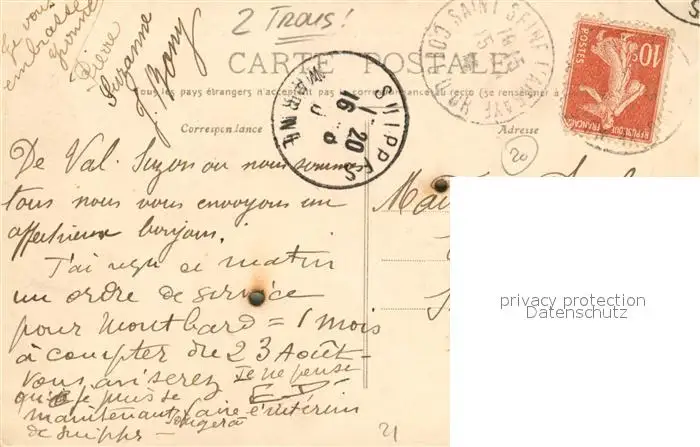 Je vous
embrasse
Yvonne
Pierre
Suzanne
J. Bony
2 Trous!
CARTE POSTALE
Tous les pays étrangers n'acceptent pas la correspondance au recto (se renseigner à
Correspondance
Adresse
SUIPPES
20
16 - 8
MARNE
SAINT SEINE L'ABBAYE
15
CÔTE D'OR
10c
POSTES
REPUBLIQUE FRANÇAISE
20
De Val. Suzon ou nous sommes
tous nous vous envoyons un
affectueux bonjour.
J'ai reçu ce matin
un ordre de service
pour Montbard = 1 mois
à compter du 23 Août-
Vous aviserez Je ne pense
que je puisse
maintenant faire l'intérim
songer à
de Suippes -
Mad
21
privacy protection
Datenschutz